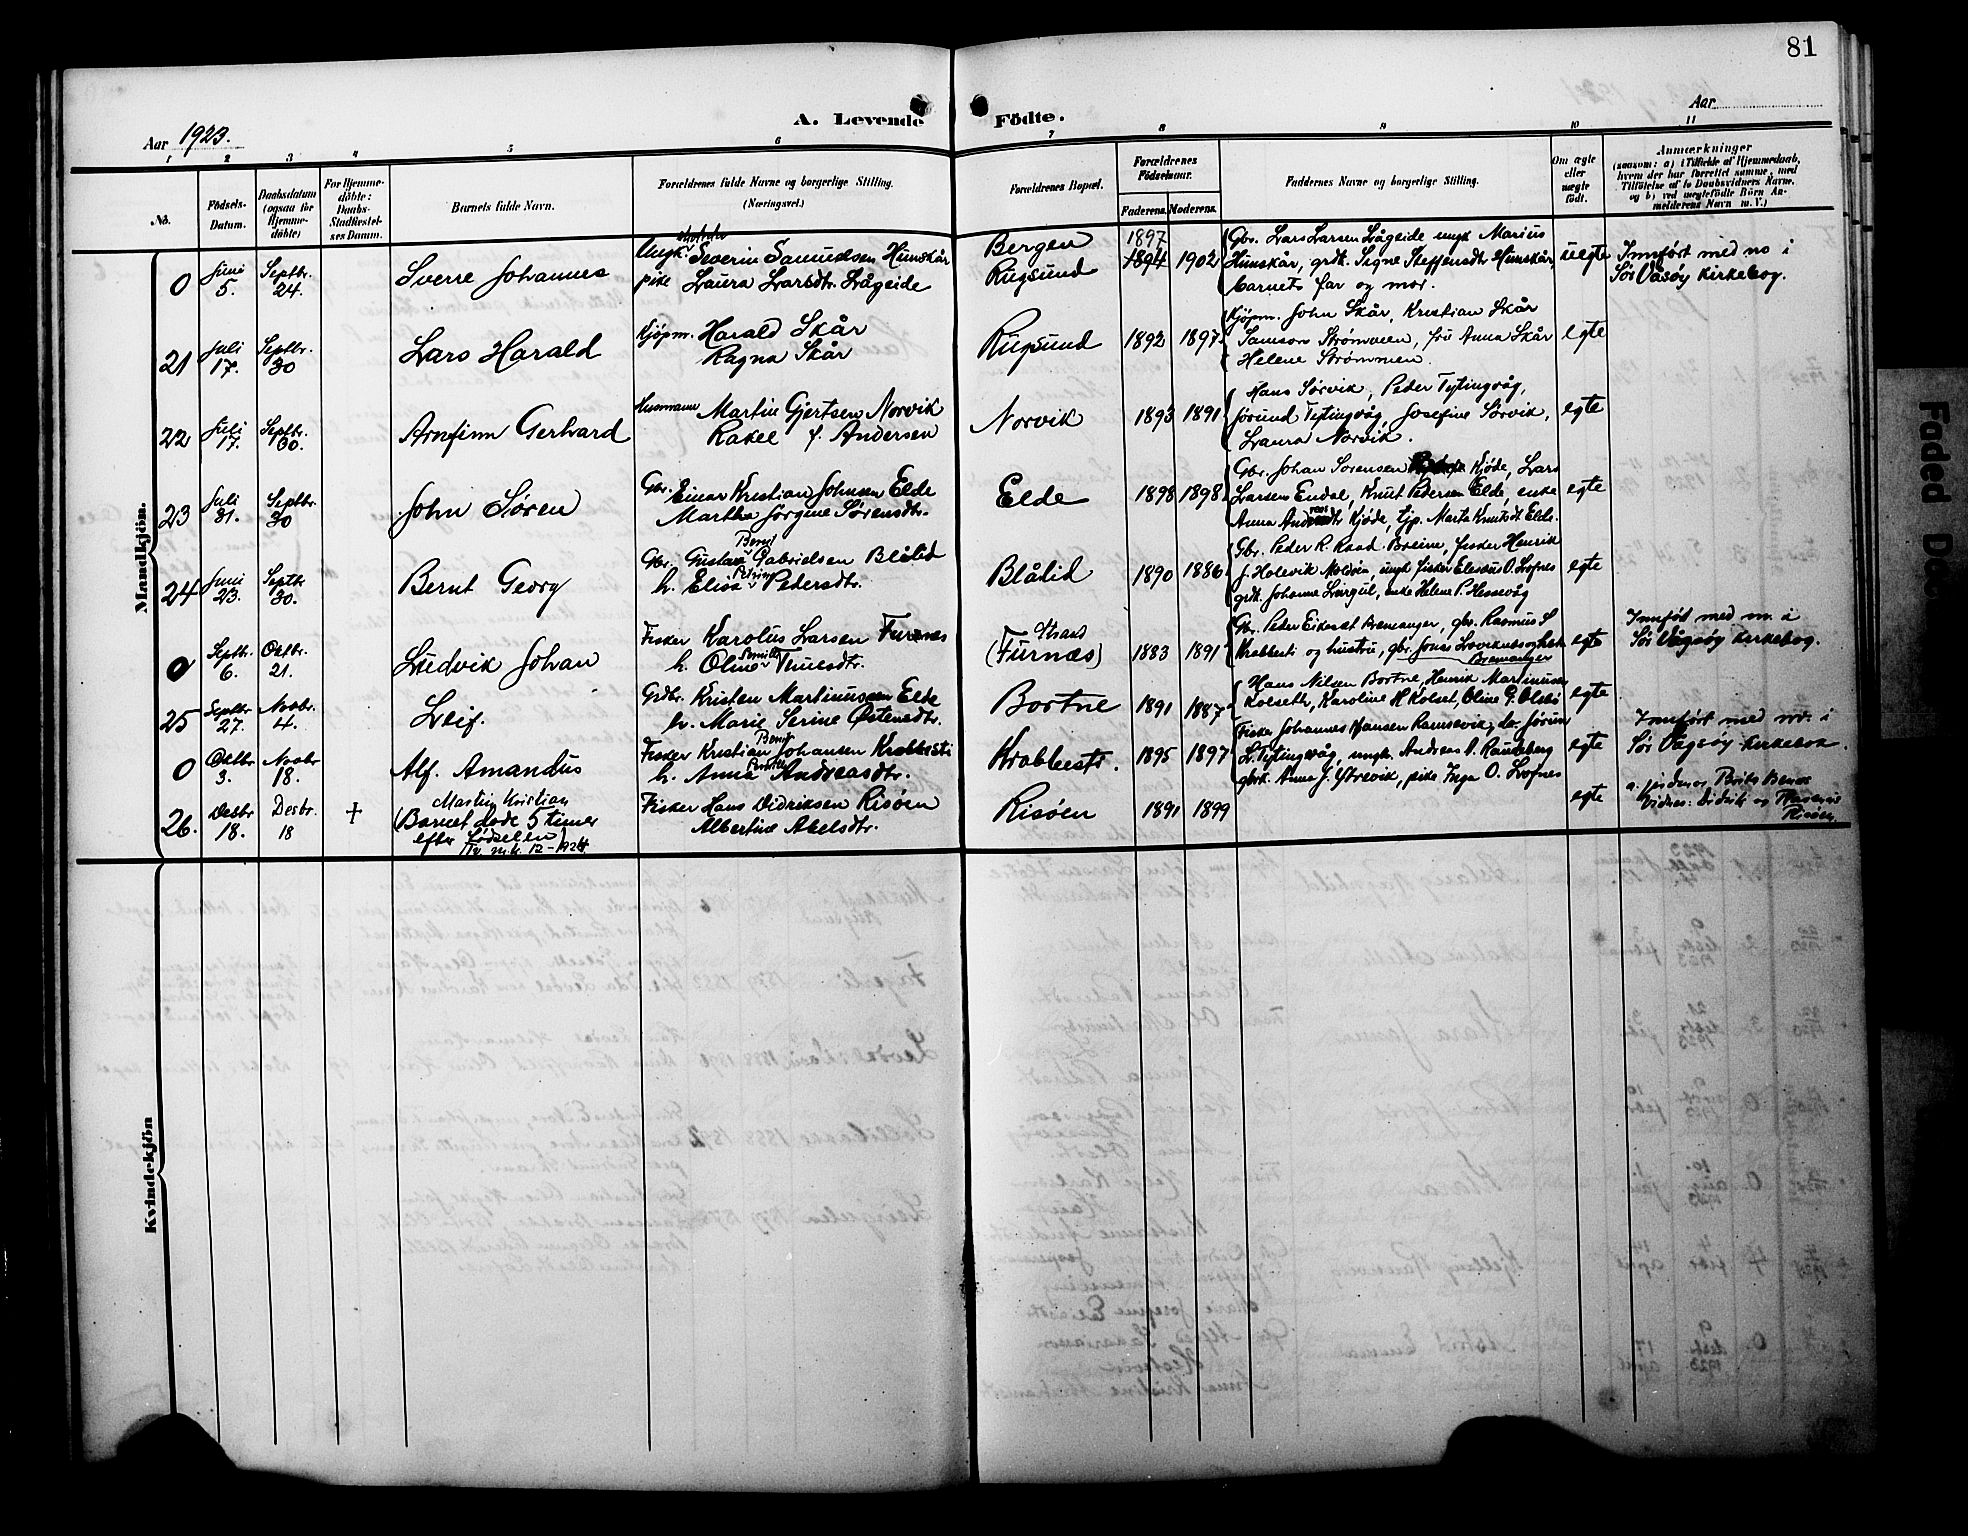 81
Aar 1923.
A. Levende Födte.
Aar
1 2 3 4 5 6 7 8 9 10 11
No.
Födsels-Datum.
Daabsdatum (ogsaa for Hjemmedöbte)
For Hjemmedöbte: Daabs-Stadfæstelses Datum.
Barnets fulde Navn.
Forældrenes fulde Navne og borgerlige Stilling.
(Næringsvei.)
Forældrenes Bopæl.
Forældrenes Födselsaar.
Faderens. Moderens.
Faddernes Navne og borgerlige Stilling.
Om ægte eller uægte födt.
Anmærkninger
(saasom: a) i Tilfælde af Hjemmedaab, hvem der har forrettet samme, med Tilföielse af to Daabsvidners Navne, og b) ved uægtefödte Börn Anmelderens Navn m. V.)
Mandkjön.
0 Juni 5. Septbr. 24. Sverre Johannes
Ungk. Severin Samuelsen Hunskår
pike Laura Larsdtr. Lågeide
Bergen
Rugsund
1897
1894 1902
Gbr. Lars Larsen Lågeide ungk Marius
Hunskår, grdt. Signe Steffensdtr Hunskår,
barnets far og mor.
uegte
Innført med no i
Sør Vågsøy kirkebog.
21 Juli 17. Septbr. 30 Lars Harald
Kjøpm. Harald Skår
Ragna Skår
Rugsund 1892 1897
Kjøpm. John Skår, Kristian Skår
Samson Strømmen, fru Anna Skår
Helene Strømmen.
egte
22 Juli 17. Septbr. 30. Arnfinn Gerhard
Husmann Martin Gjertsen Norvik
Rakel f. Andersen
Norvik 1893 1891
Hans Sørvik, Peder Tytingvåg,
Jørund Tytingvåg, Josefine Sørvik,
Laura Norvik.
egte
23 Juli 31. Septbr. 30 John Søren
Gbr. Einar Kristian Johnsen Elde
Martha Jørgine Sørensdtr.
Elde 1898 1898
Gbr. Johan Sorensen Kjøde, Lars
Larsen Endal, Knut Pedersen Elde, enke
Anna Kjøde, tjp. Marta Knutsdt Elde.
egte
24 Juni 23. Septbr 30. Bernt Georg
Gbr. Gustav Bernt Gabrielsen Blålid
h. Elisa Petrine Pedersdtr.
Blålid 1890 1886
Gbr. Peder R. Raad. Breine, fisker Henrik
J. Holevik Moldøen, ungk. fisker Eleseus O. Lofnes
grdt. Johanne Leirgul, enke Helene P. Hessevåg
egte
0 Septbr. 6. Oktbr. 21. Ludvik Johan
Fisker Karolus Larsen Furenes
h. Oline Pernille Tenesdtr.
(Furnæs) 1883 1891
Gbr. Peder Eikeset Bremanger, gbr. Rasmus S
Krabbesti og hustru, gbr. Jonas
Bremanger
egte
Innført med nr. i
Sør Vågsøy kirkebog.
25 Septbr 27. Novbr. 4. Leif.
Grdbr. Kristen Martinussen Elde
h. Marie Serine Østensdtr.
Bortne 1891 1887
Hans Nilsen Bortne, Henrik Martinusen
Kolseth, Karoline H Kolset, Oline G. Olsbø
egte
0 Oktbr 3. Novbr 18. Alf. Amandus
Fisker Kristian Bernt Johansen Krabbesti
h. Anna Pernille Andreasdtr.
Krabbesti. 1895 1897
Fisker Johannes Hansen Ramsevik, do. Jørund
L. Tytingvåg, ungk. Andreas P. Raudeberg
gbrk. Anna J. Ytrevik, pike Inga O. Lofnes
egte
Innført med nr. i
Sør Vågsøy kirkebok.
26. Desbr 18. Desbr. 18 +
Martin Kristian
(Barnet døde 5 timer
efter fødselen)
Fisker Hans Didriksen Risøen
Albertine Akelsdtr.
Risøen 1891 1899
egte
a. jordmor Brita Benas
Vidner: Didrik og
Risøen
Kvindekjön
Faded Doc